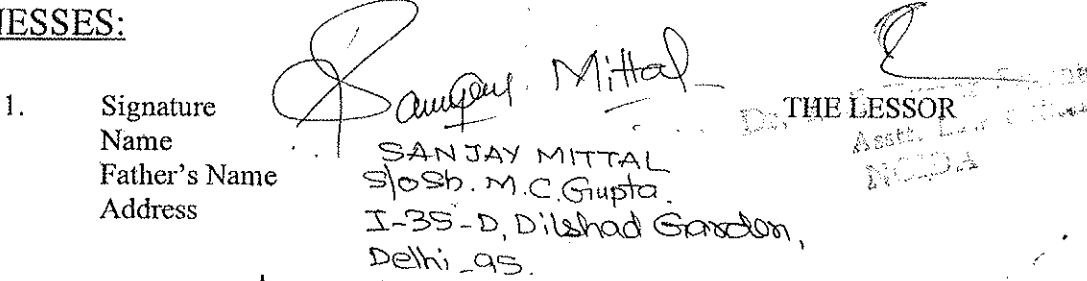 NESSES:
1. Signature Sanjay Mittal THE LESSOR
Name SANJAY MITTAL
Father's Name S/o Sh. M.C. Gupta.
Address I-35-D, Dilshad Garden,
Delhi-95.
Asstt. Law Officer
NOIDA